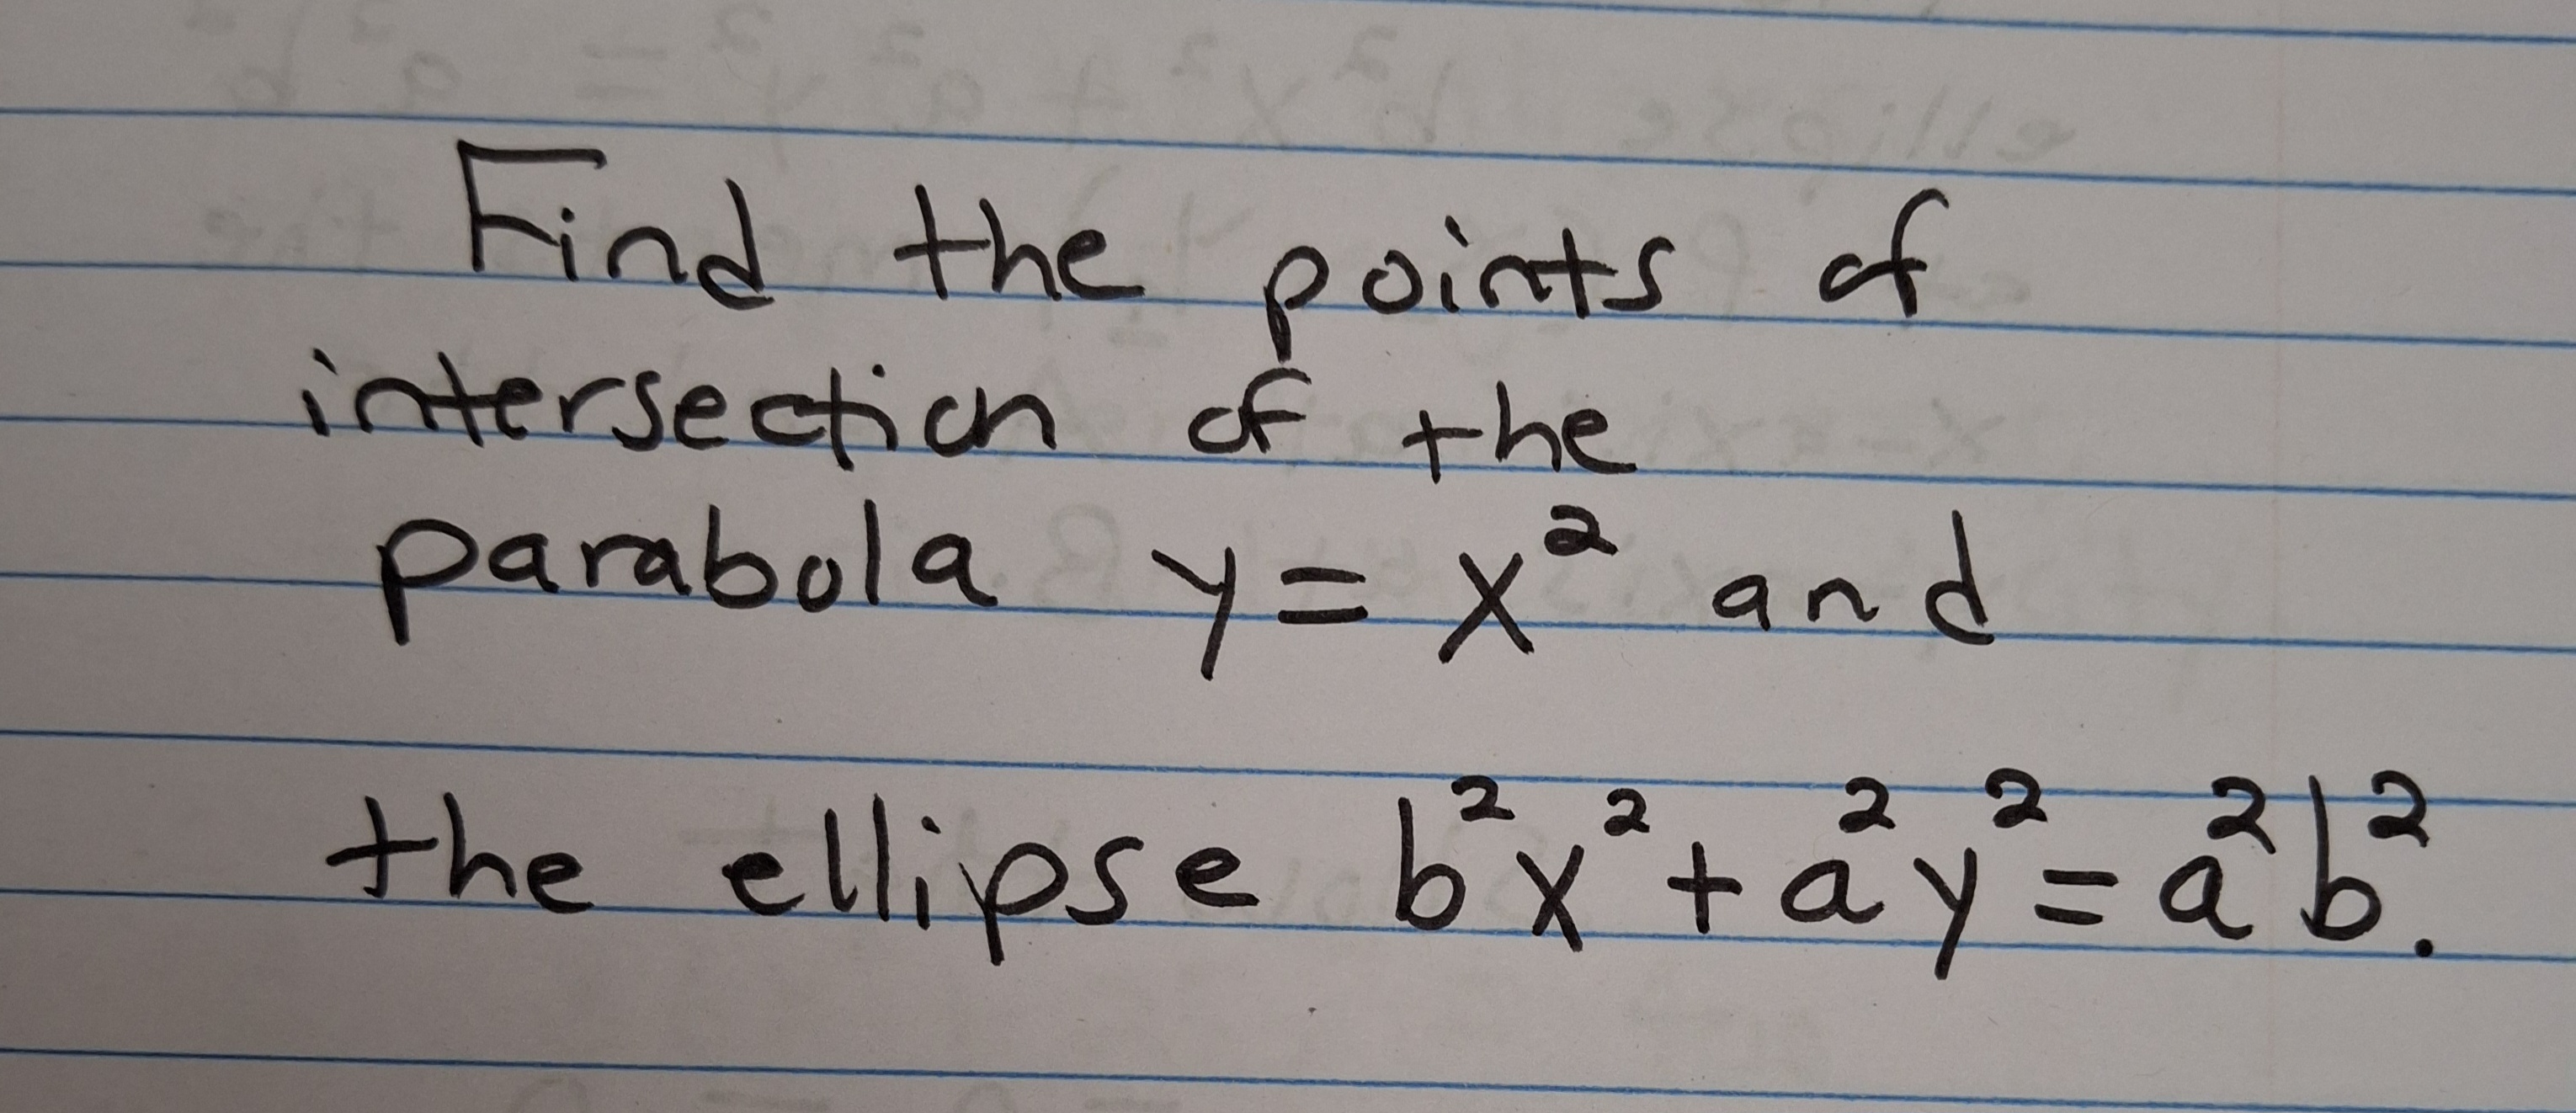 Find the points of
intersection of the
parabola y = x² and
the ellipse b²x² + a²y² = a²b².